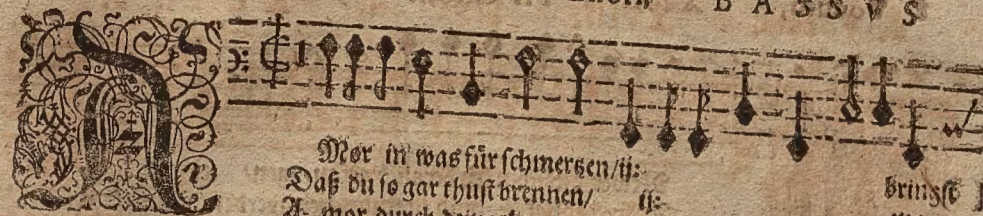 BASSVS
AMor in was für schmertzen/ij:
Daß du so gar thust brennen/ ij: bringst
A- mor durch